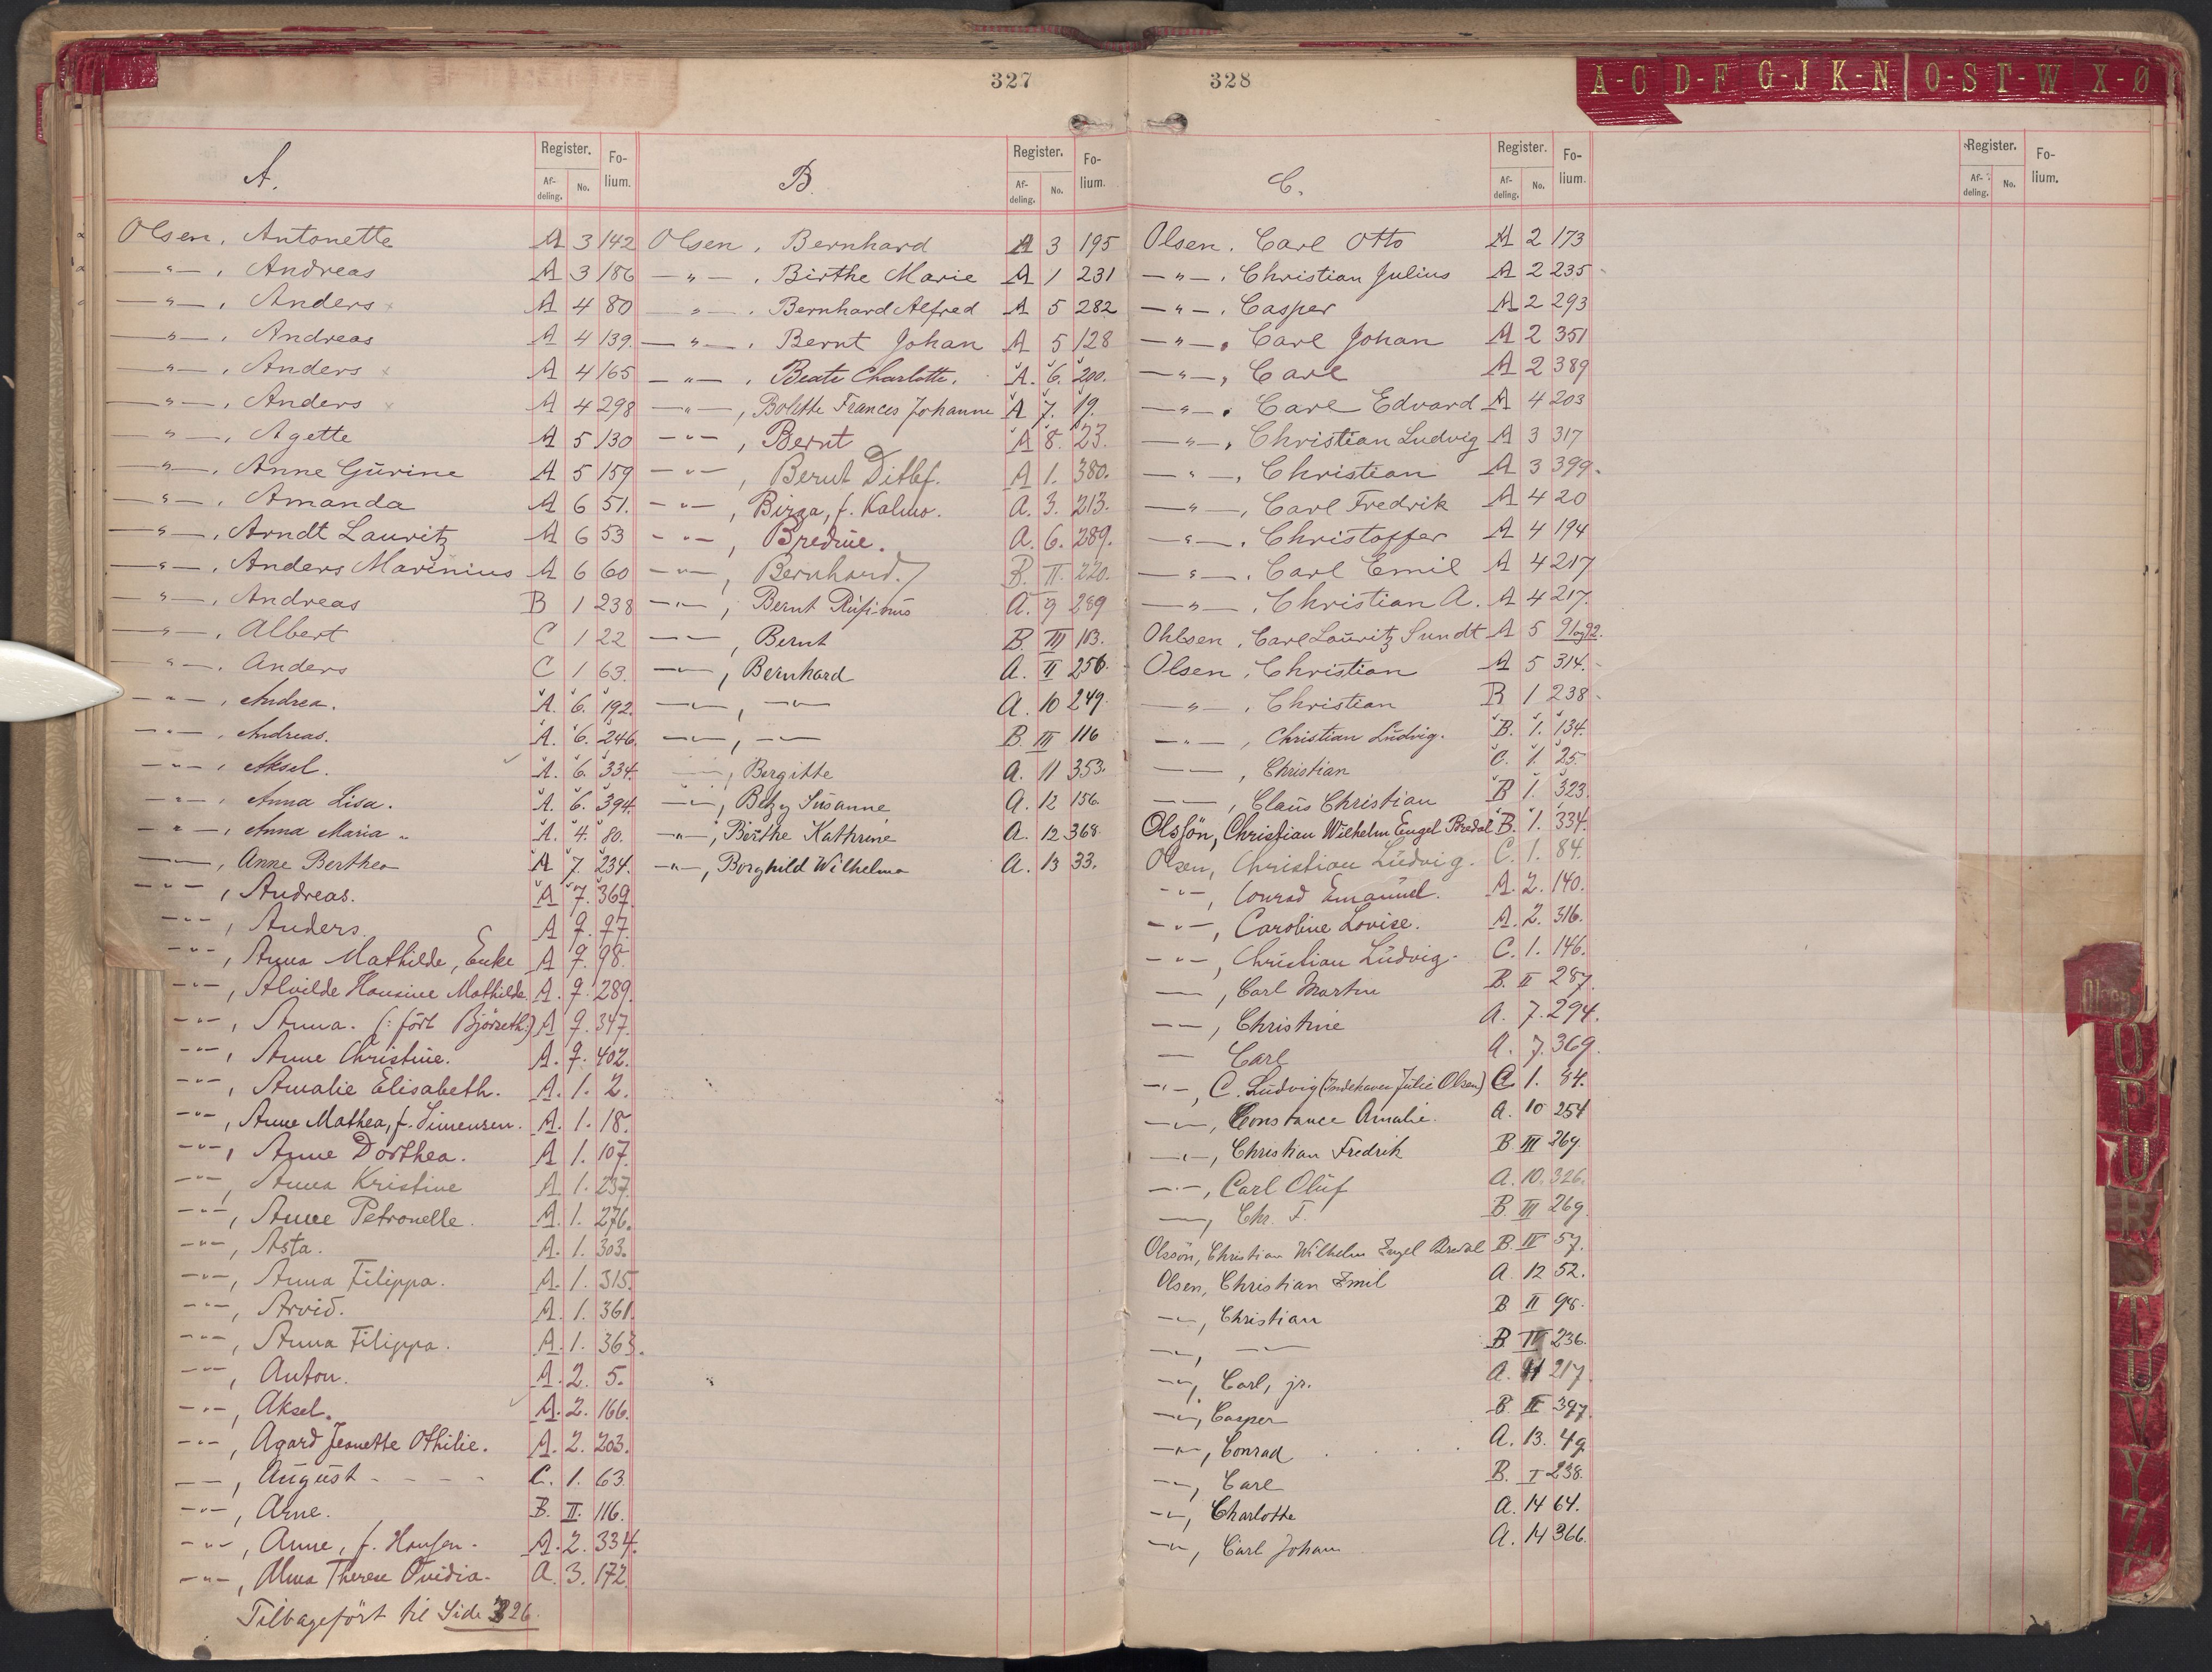 327
328
A-C D-F G-J K-N O-S T-W X-Ø
A.
Register. Fo-lium.
Af-deling. No.
Olsen, Antonette A 3 142
—"—, Andreas A 3 186
—"—, Anders A 4 80
—"—, Andreas A 4 139.
—"—, Anders A 4 165
—"—, Anders A 4 298
—"—, Agette A 5 130
—"—, Anne Gürine A 5 159
—"—, Amanda A 6 51.
—"—, Arndt Lauritz A 6 53
—"—, Anders Marinius A 6 60
—"—, Andreas B 1 238
—"—, Albert C 1 22
—"—, Anders C 1 63.
—"—, Andrea. A. 6. 192.
—"—, Andreas. A. 6. 246.
—"—, Aksel. A. 6. 334.
—"—, Anna Lisa. A. 6. 394.
—"—, Anna Maria A. 4. 80.
—"—, Anne Berthea A 7. 234.
—"—, Andreas. A 7. 369.
—"—, Anders. A 7. 77.
—"—, Anna Mathilde, Enke A 7. 98.
—"—, Alvilde Hansine Mathilde. A. 7. 289.
—"—, Anna. (:ført Bjørseth:) A 7. 347.
—"—, Anne Christine. A. 7. 402.
—"—, Amalie Elisabeth. A. 1. 2.
—"—, Anne Mathea, f. Simensen. A. 1. 18.
—"—, Anne Dorthea. A 1. 107.
—"—, Anna Kristine A 1. 237.
—"—, Anne Petronelle. A. 1. 276.
—"—, Asta. A. 1. 303.
—"—, Anna Filippa. A. 1. 315.
—"—, Arvid. A. 1. 361.
—"—, Anna Filippa. A. 1. 363.
—"—, Anton. A. 2. 5.
—"—, Aksel. A. 2. 166.
—"—, Agard Jeanette Othilie. A. 2. 203.
—"—, August - - - - C. 1. 63
—"—, Arne. B. II. 116.
—"—, Anne, f. Hansen. A. 2. 334.
—"—, Alma Therese Ovidia. A. 3. 172.
Tilbageført til Side 326.
B.
Register. Fo-lium.
Af-deling. No.
Olsen, Bernhard A 3 195
—"—, Birthe Marie A 1 231
—"—, Bernhard Alfred A 5 282
—"—, Bernt Johan A 5 128
—"—, Beate Charlotte. A. 6. 200.
—"—, Bolette Frances Johanne A 7. 19.
—"—, Bernt A 8. 23.
—"—, Bernt Ditlef. A 1. 380.
—"—, Birga, f. Kalmo. A. 3. 213.
—"—, Bredine. A. 6. 289.
—"—, Bernhard. B. II. 220.
—"—, Bernt Rüfinus A. 9 289
—"—, Bernt B. III 113.
—"—, Bernhard A. II 256.
—"—, —"— A. 10 249.
—"—, —"— B. III 116
—"—, Bergitte A. 11 353.
—"—, Betzy Susanne A. 12 156.
—"—, Berthe Kathrine A. 12 368.
—"—, Borghild Wilhelma A. 13 33.
C.
Register. Fo-lium.
Af-deling. No.
Olsen, Carl Otto A 2 173
—"—, Christian Julius A 2 235
—"—, Casper A 2 293
—"—, Carl Johan A 2 351
—"—, Carl A 2 389
—"—, Carl Edvard A 4 203
—"—, Christian Ludvig A 3 317
—"—, Christian A 3 399.
—"—, Carl Fredrik A 4 20
—"—, Christoffer A 4 194
—"—, Carl Emil A 4 217
—"—, Christian A. A 4 217.
Ohlsen, Carl Lauritz Sundt A 5 91og92.
Olsen, Christian A 5 314.
—"—, Christian B 1 238
—"—, Christian Ludvig. B. 1. 134.
—"—, Christian C. 1. 25.
—"—, Claus Christian B 1. 323.
Olssön, Christian Wilhelm Engel Bredal B. 1. 334.
Olsen, Christian Ludvig. C. 1. 84.
—"—, Conrad Emanuel. A. 2. 140.
—"—, Caroline Lovise. A. 2. 316.
—"—, Christian Ludvig. C. 1. 146.
—"—, Carl Martin B. II 287.
—"—, Christine A. 7. 294.
— Carl A. 7. 369.
—"—, C. Ludvig (Indehaver Julie Olsen) C 1. 84.
—"—, Constance Amalie. A. 10 254
—"—, Christian Fredrik B III 269
—"—, Carl Oluf A. 10. 326.
—"—, Chr. F. B. III 269.
Olssön, Christian Wilhelm Engel Bredal B. IV 57.
Olsen, Christian Emil A 12 52.
—"—, Christian B II 98.
—"—, —"— B. IV 236.
—"—, Carl, jr. A. 11 217.
—"—, Casper B. II 397.
—"—, Conrad A. 13. 49.
—"—, Carl B. I 238.
—"—, Charlotte A. 14 64.
—"—, Carl Johan A. 14 366.
Register. Fo-lium.
Af-deling. No.
Olsen
O
P
U
R
T
U
V
Y
Z